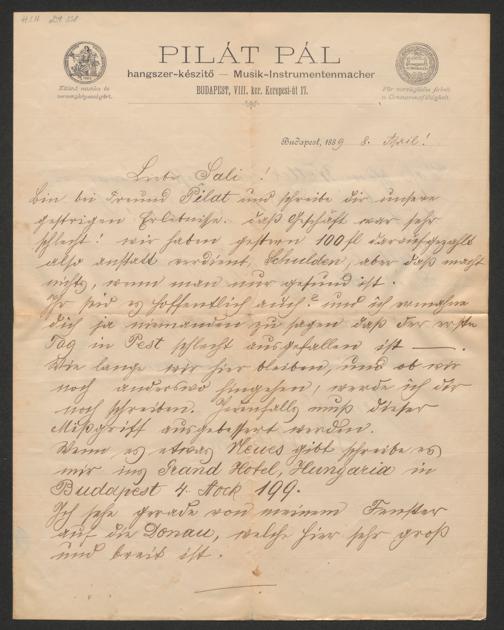 H.I.N
PILÁT PÁL
hangszer-készitő — Musik-Instrumentenmacher
BUDAPEST, VIII. ker. Kerepesi-út 17.
Kitünő munka és
versenyképességért.
Für vorzügliche Arbeit
u. Concurrenzfähigkeit.
Budapest, 1889 8. April!
Liebe Sali!
bin bei Freund Pilat und schreibe dir unsere
gestrigen Erlebnisse. daß Geschäft war sehr
schlecht! wir haben gestern 100 fl daraufgezahlt
also anstatt verdient, Schulden, aber daß macht
nichts, wenn man nur gesund ist.
Ihr seid es hoffentlich auch? und ich ermahne
dich ja niemanden zu sagen daß der erste
Tag in Pest schlecht ausgefallen ist —.
Wie lange wir hier bleiben, und ob wir
noch anderswo hingehen, werde ich dir
noch schreiben. Jedenfalls muß dieser
Mißgriff ausgebessert werden.
Wenn es etwas Neues gibt schreibe es
mir ins Grand Hotel, Hungaria in
Budapest 4. Stock 199.
Ich sehe gerade von meinem Fenster
auf die Donau, welche hier sehr groß
und breit ist.